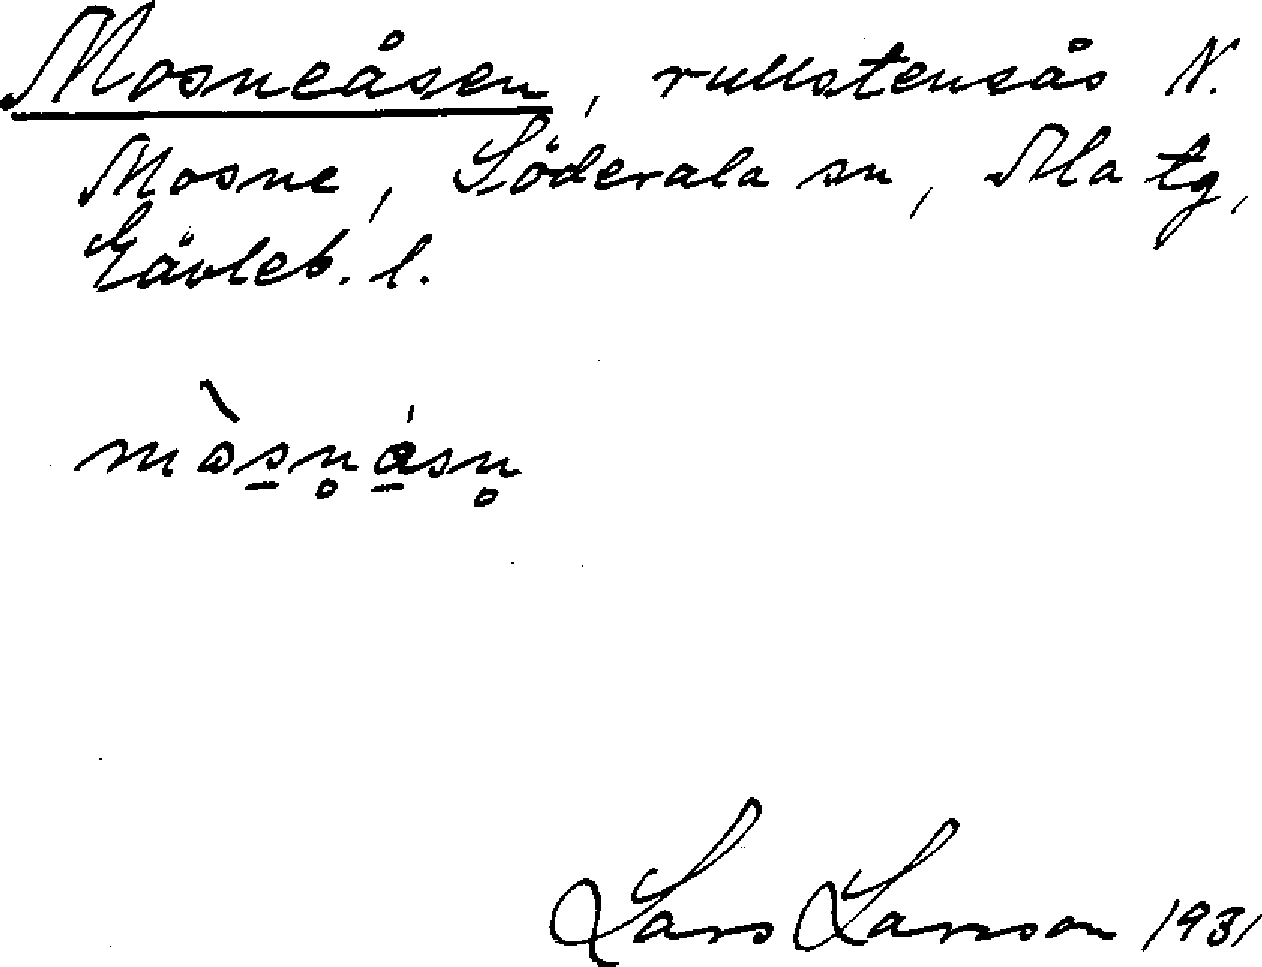 Mosneåsen, rullstensås N.
Mosne, Söderala sn, Ala tg,
Gävleb. l.
mòs̲n̥á̲sn̥
Lars Larsson 1931